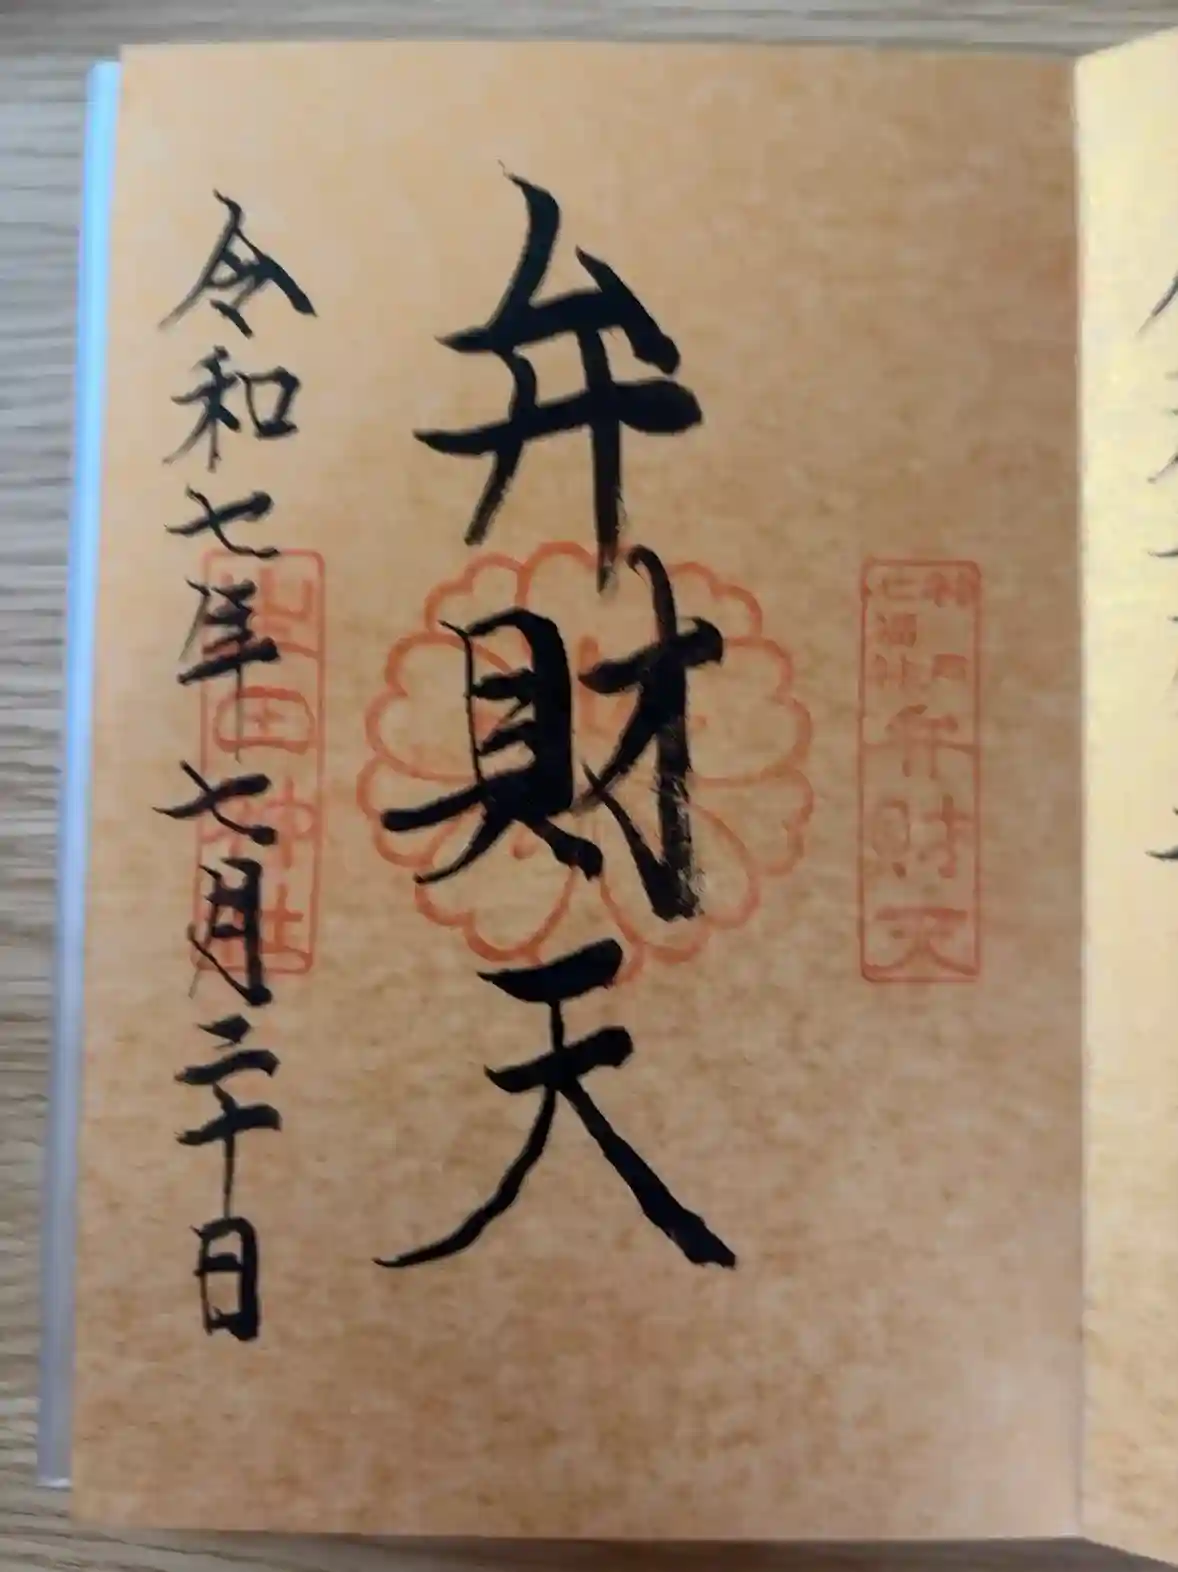 神戸
七福神
弁財天
弁財天
令和七年七月二十日
生田神社